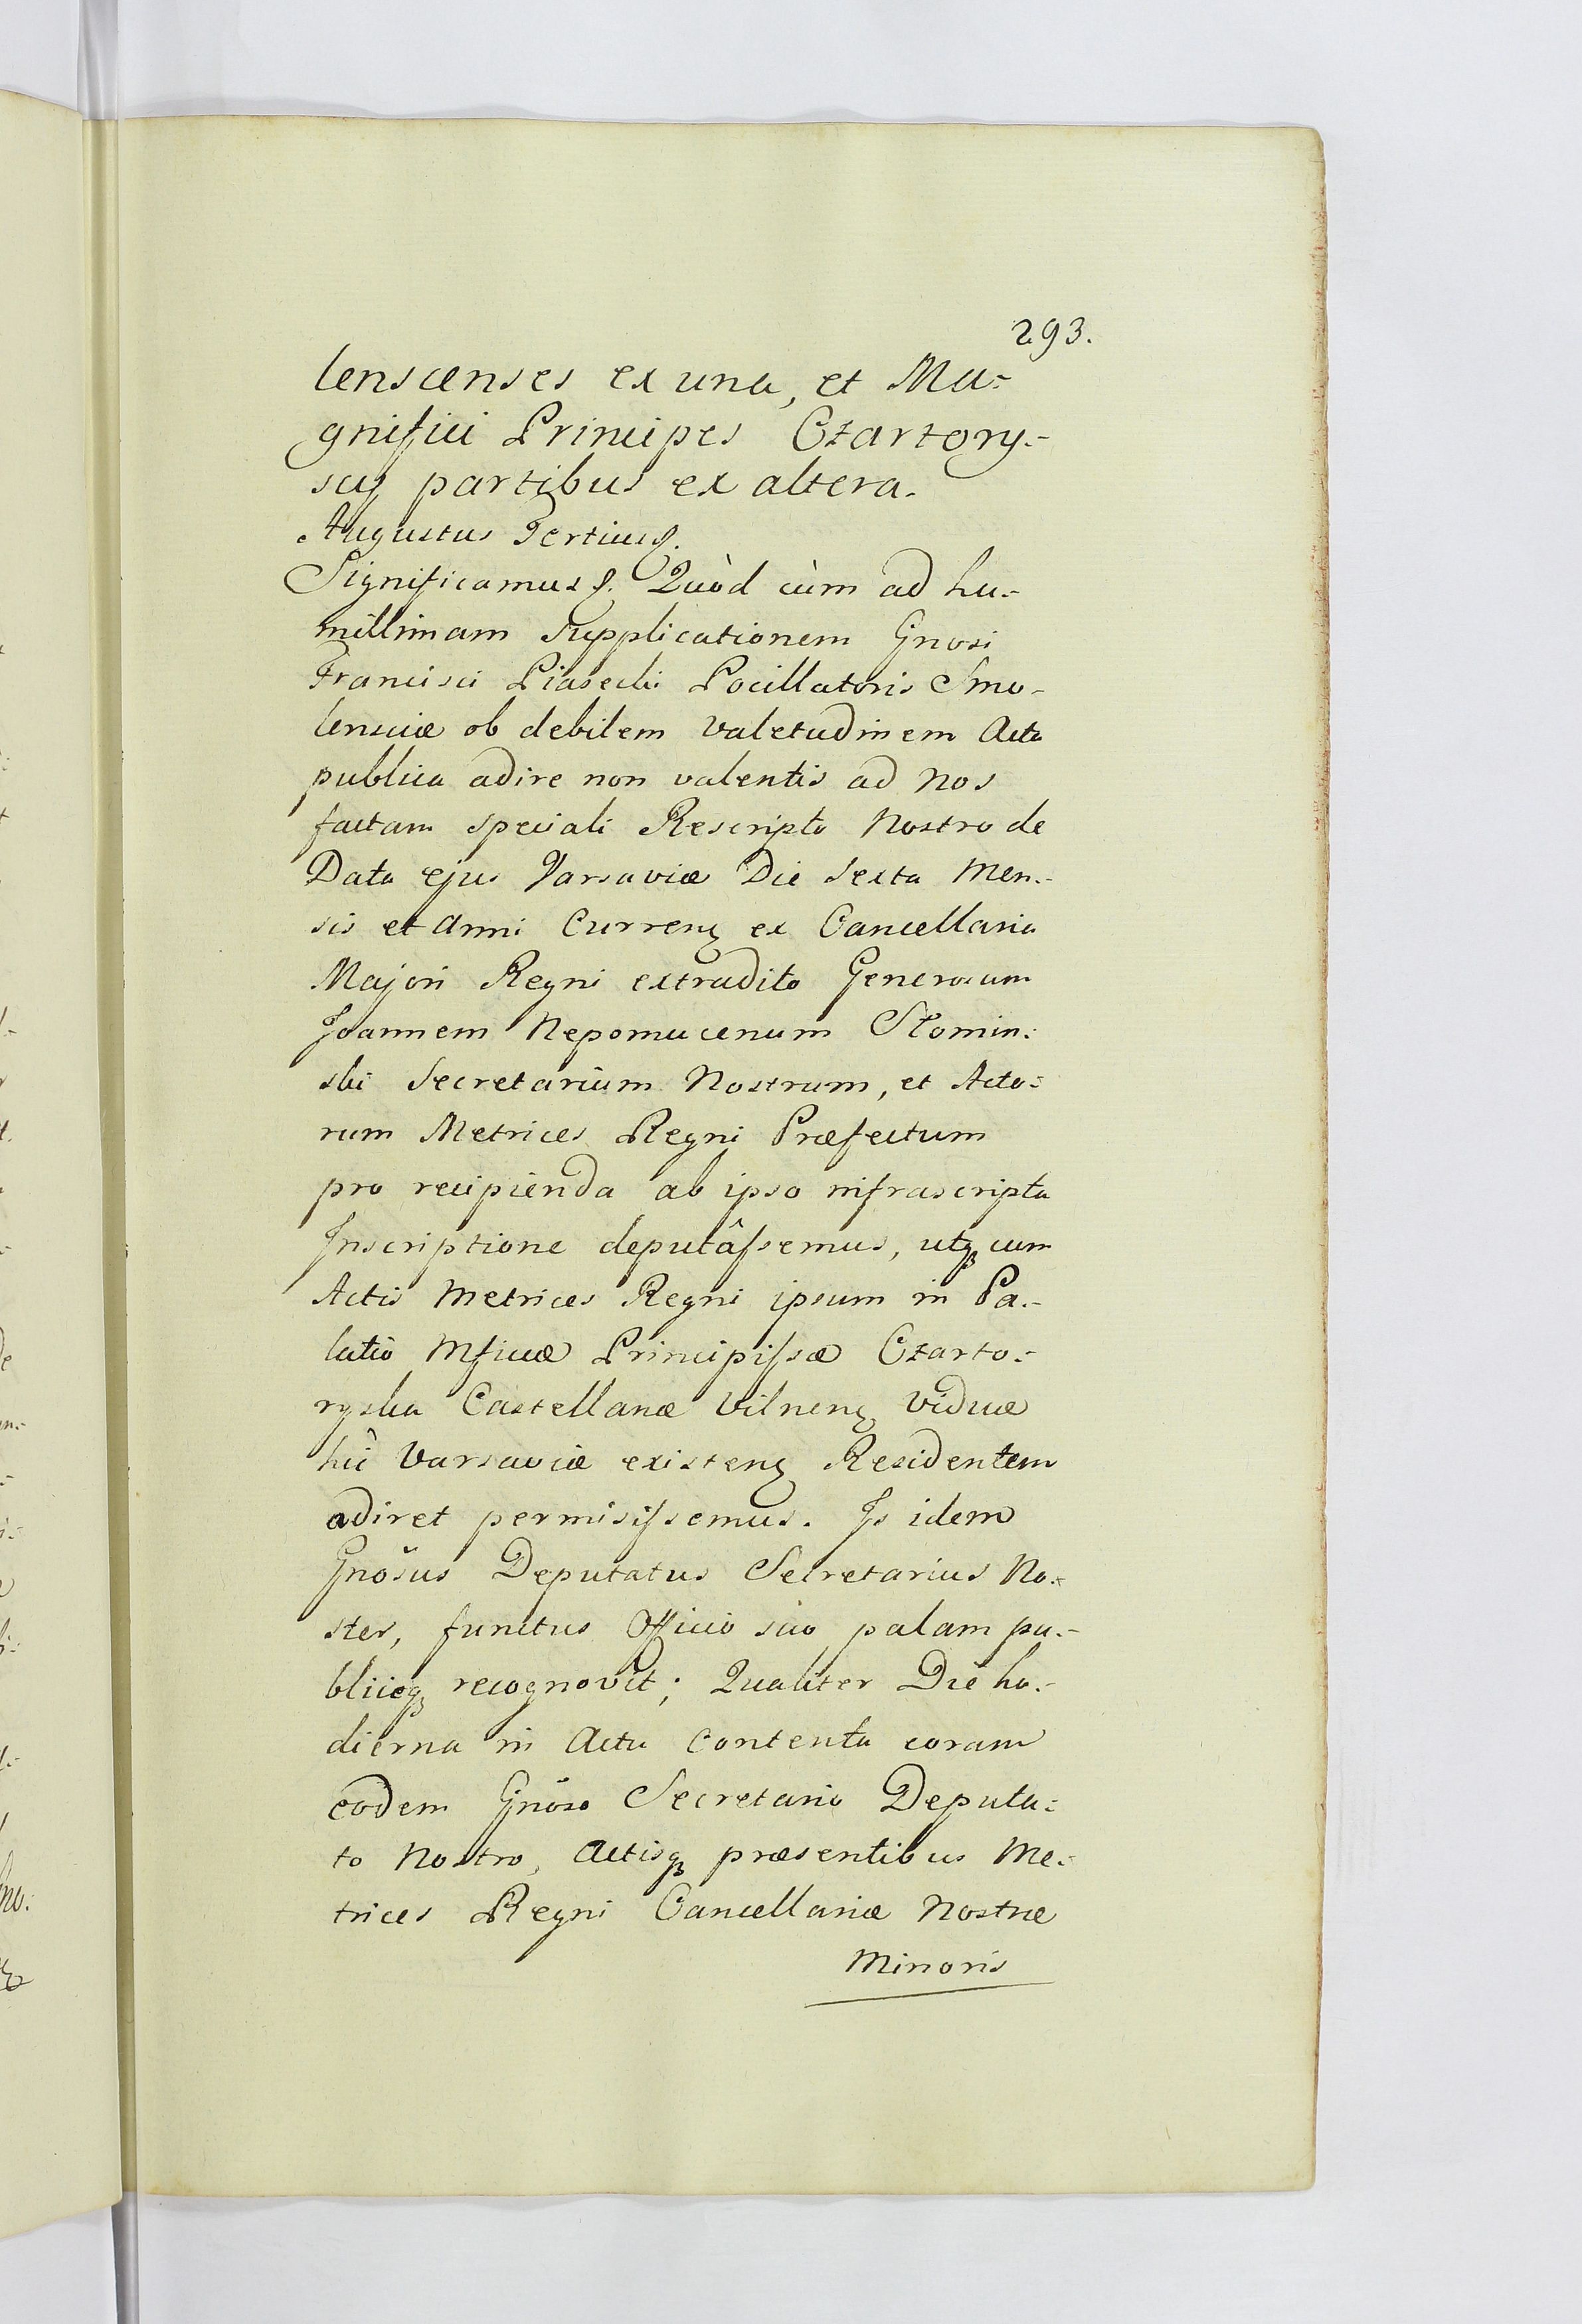 293.
lenscenses ex una, et Ma=
gnifici Principes Czartory=
scy partibus ex altera.
Augustus Tertius &.
Significamus &. Quòd cùm ad hu=
millimam supplicationem Gnosi
Francisci Piasecki Pocillatoris Smo-
lensciæ ob debilem valetudinem Acta
publica adire non valentis ad Nos
factam speciali Rescripto Nostro de
Data ejus Varsaviæ Die Sexta Men=
sis et Anni Currenꝫ ex Cancellaria
Majori Regni extradito Generosum
Joannem Nepomucenum Slomin=
ski Secretarium Nostrum, et Acto=
rum Metrices Regni Præfectum
pro recipienda ab ipso infrascripta
Inscriptione deputâssemus, utqꝫ cum
Actis Metrices Regni ipsum in Pa=
latio Mficæ Principissæ Czarto=
ryska Castellanæ Vilnenꝫ Viduæ
hîc Varsaviæ existenꝫ Residentem
adiret permisissemus. Is idem
Gnõsus Deputatus Secretarius No=
ster, functus Officio suo palam pu=
bliceqꝫ recognovit; Qualiter Die ho=
dierna in Actu contenta coram
eodem Gnõso Secretario Deputa=
to Nostro, Actisqꝫ præsentibus Me=
trices Regni Cancellariæ Nostræ
Minoris